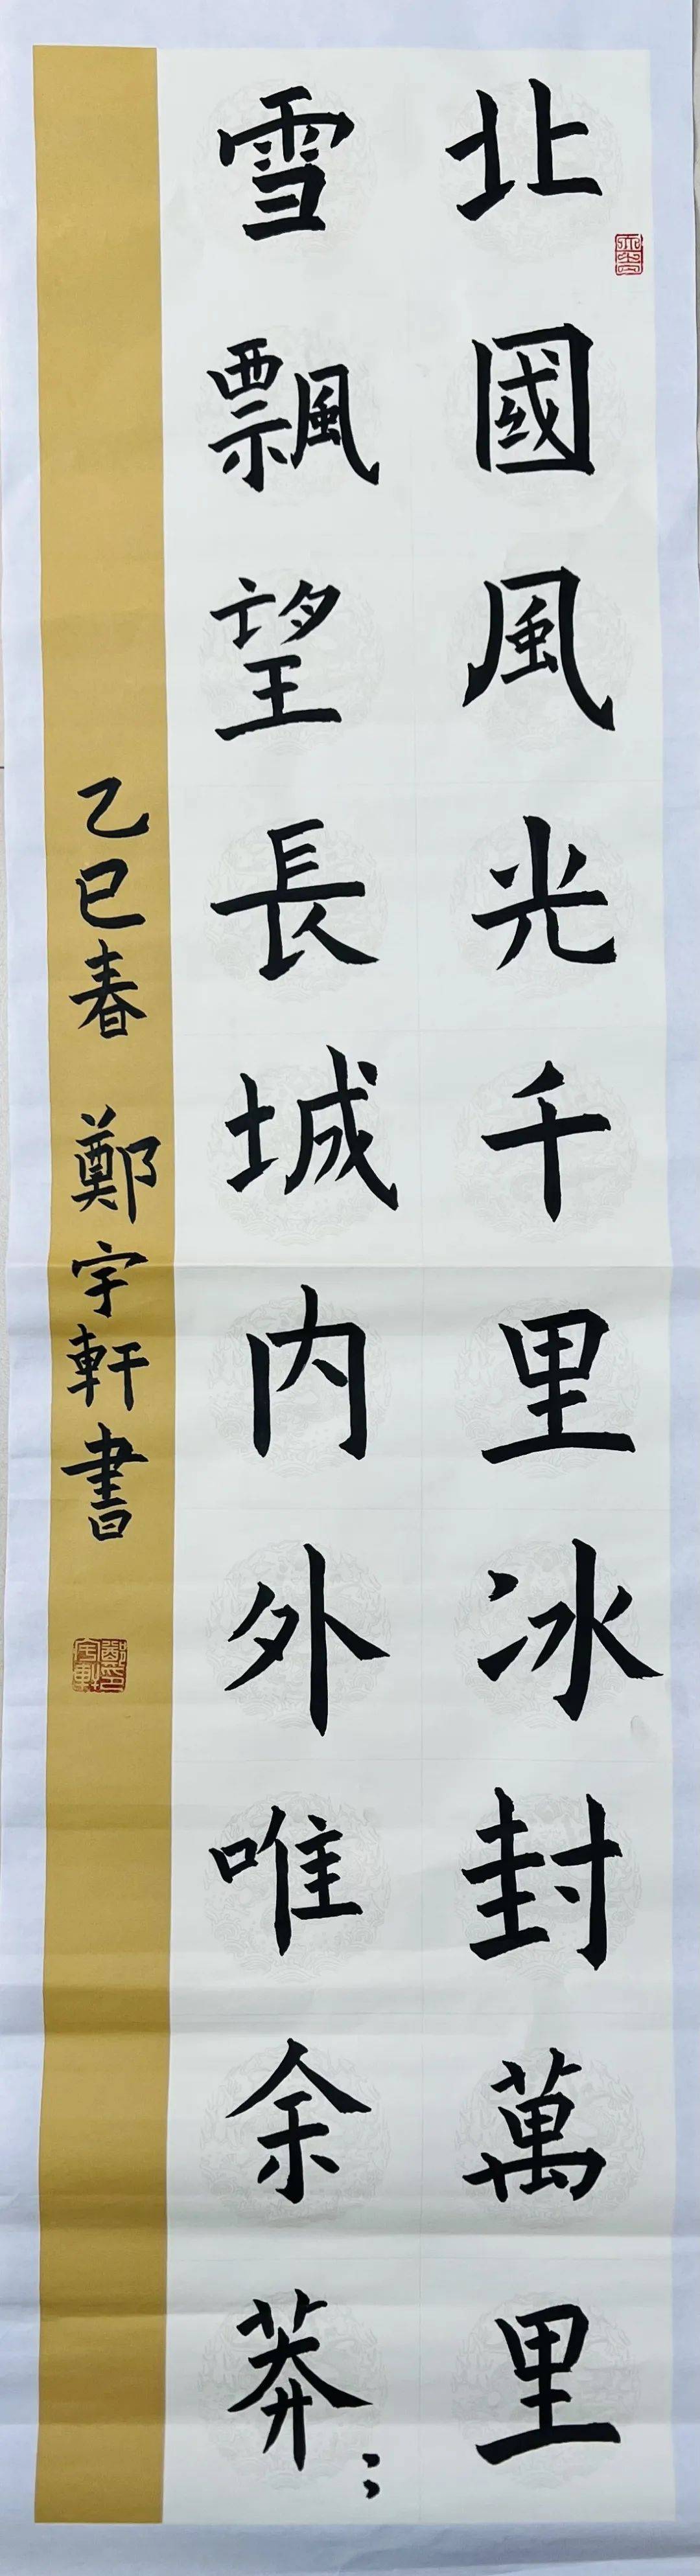 北國風光千里冰封萬里
雪飄望長城内外唯余莽：
乙巳春 鄭宇軒書
鄭宇軒印